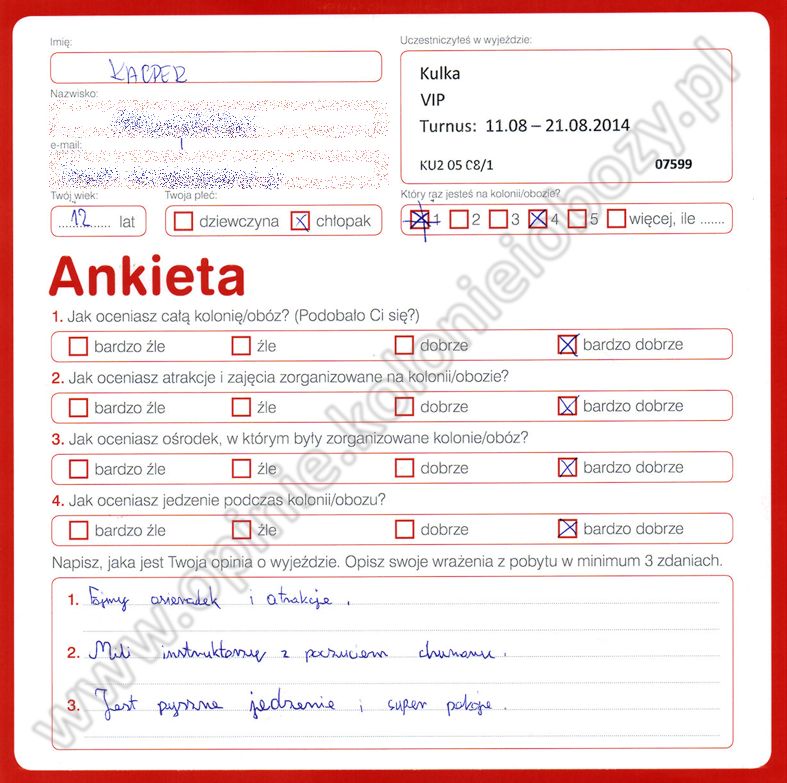 Imię:
Uczestniczyłeś w wyjeździe:
KACPER
Kulka
VIP
Turnus: 11.08 – 21.08.2014
KU2 05 C8/1 07599
Nazwisko:
e-mail:
Twój wiek:
Twoja płeć:
Który raz jesteś na kolonii/obozie?
....12...... lat
dziewczyna chłopak
1 2 3 4 5 więcej, ile .......
Ankieta
1. Jak oceniasz całą kolonię/obóz? (Podobało Ci się?)
bardzo źle źle dobrze bardzo dobrze
2. Jak oceniasz atrakcje i zajęcia zorganizowane na kolonii/obozie?
bardzo źle źle dobrze bardzo dobrze
3. Jak oceniasz ośrodek, w którym były zorganizowane kolonie/obóz?
bardzo źle źle dobrze bardzo dobrze
4. Jak oceniasz jedzenie podczas kolonii/obozu?
bardzo źle źle dobrze bardzo dobrze
Napisz, jaka jest Twoja opinia o wyjeździe. Opisz swoje wrażenia z pobytu w minimum 3 zdaniach.
1. Fajny i atrakcje.
2. Mili instruktorzy z poczuciem chumaru.
3. Jest pyszne jedzenie i super pokoje.
www.opinie.kolonieiobozy.pl